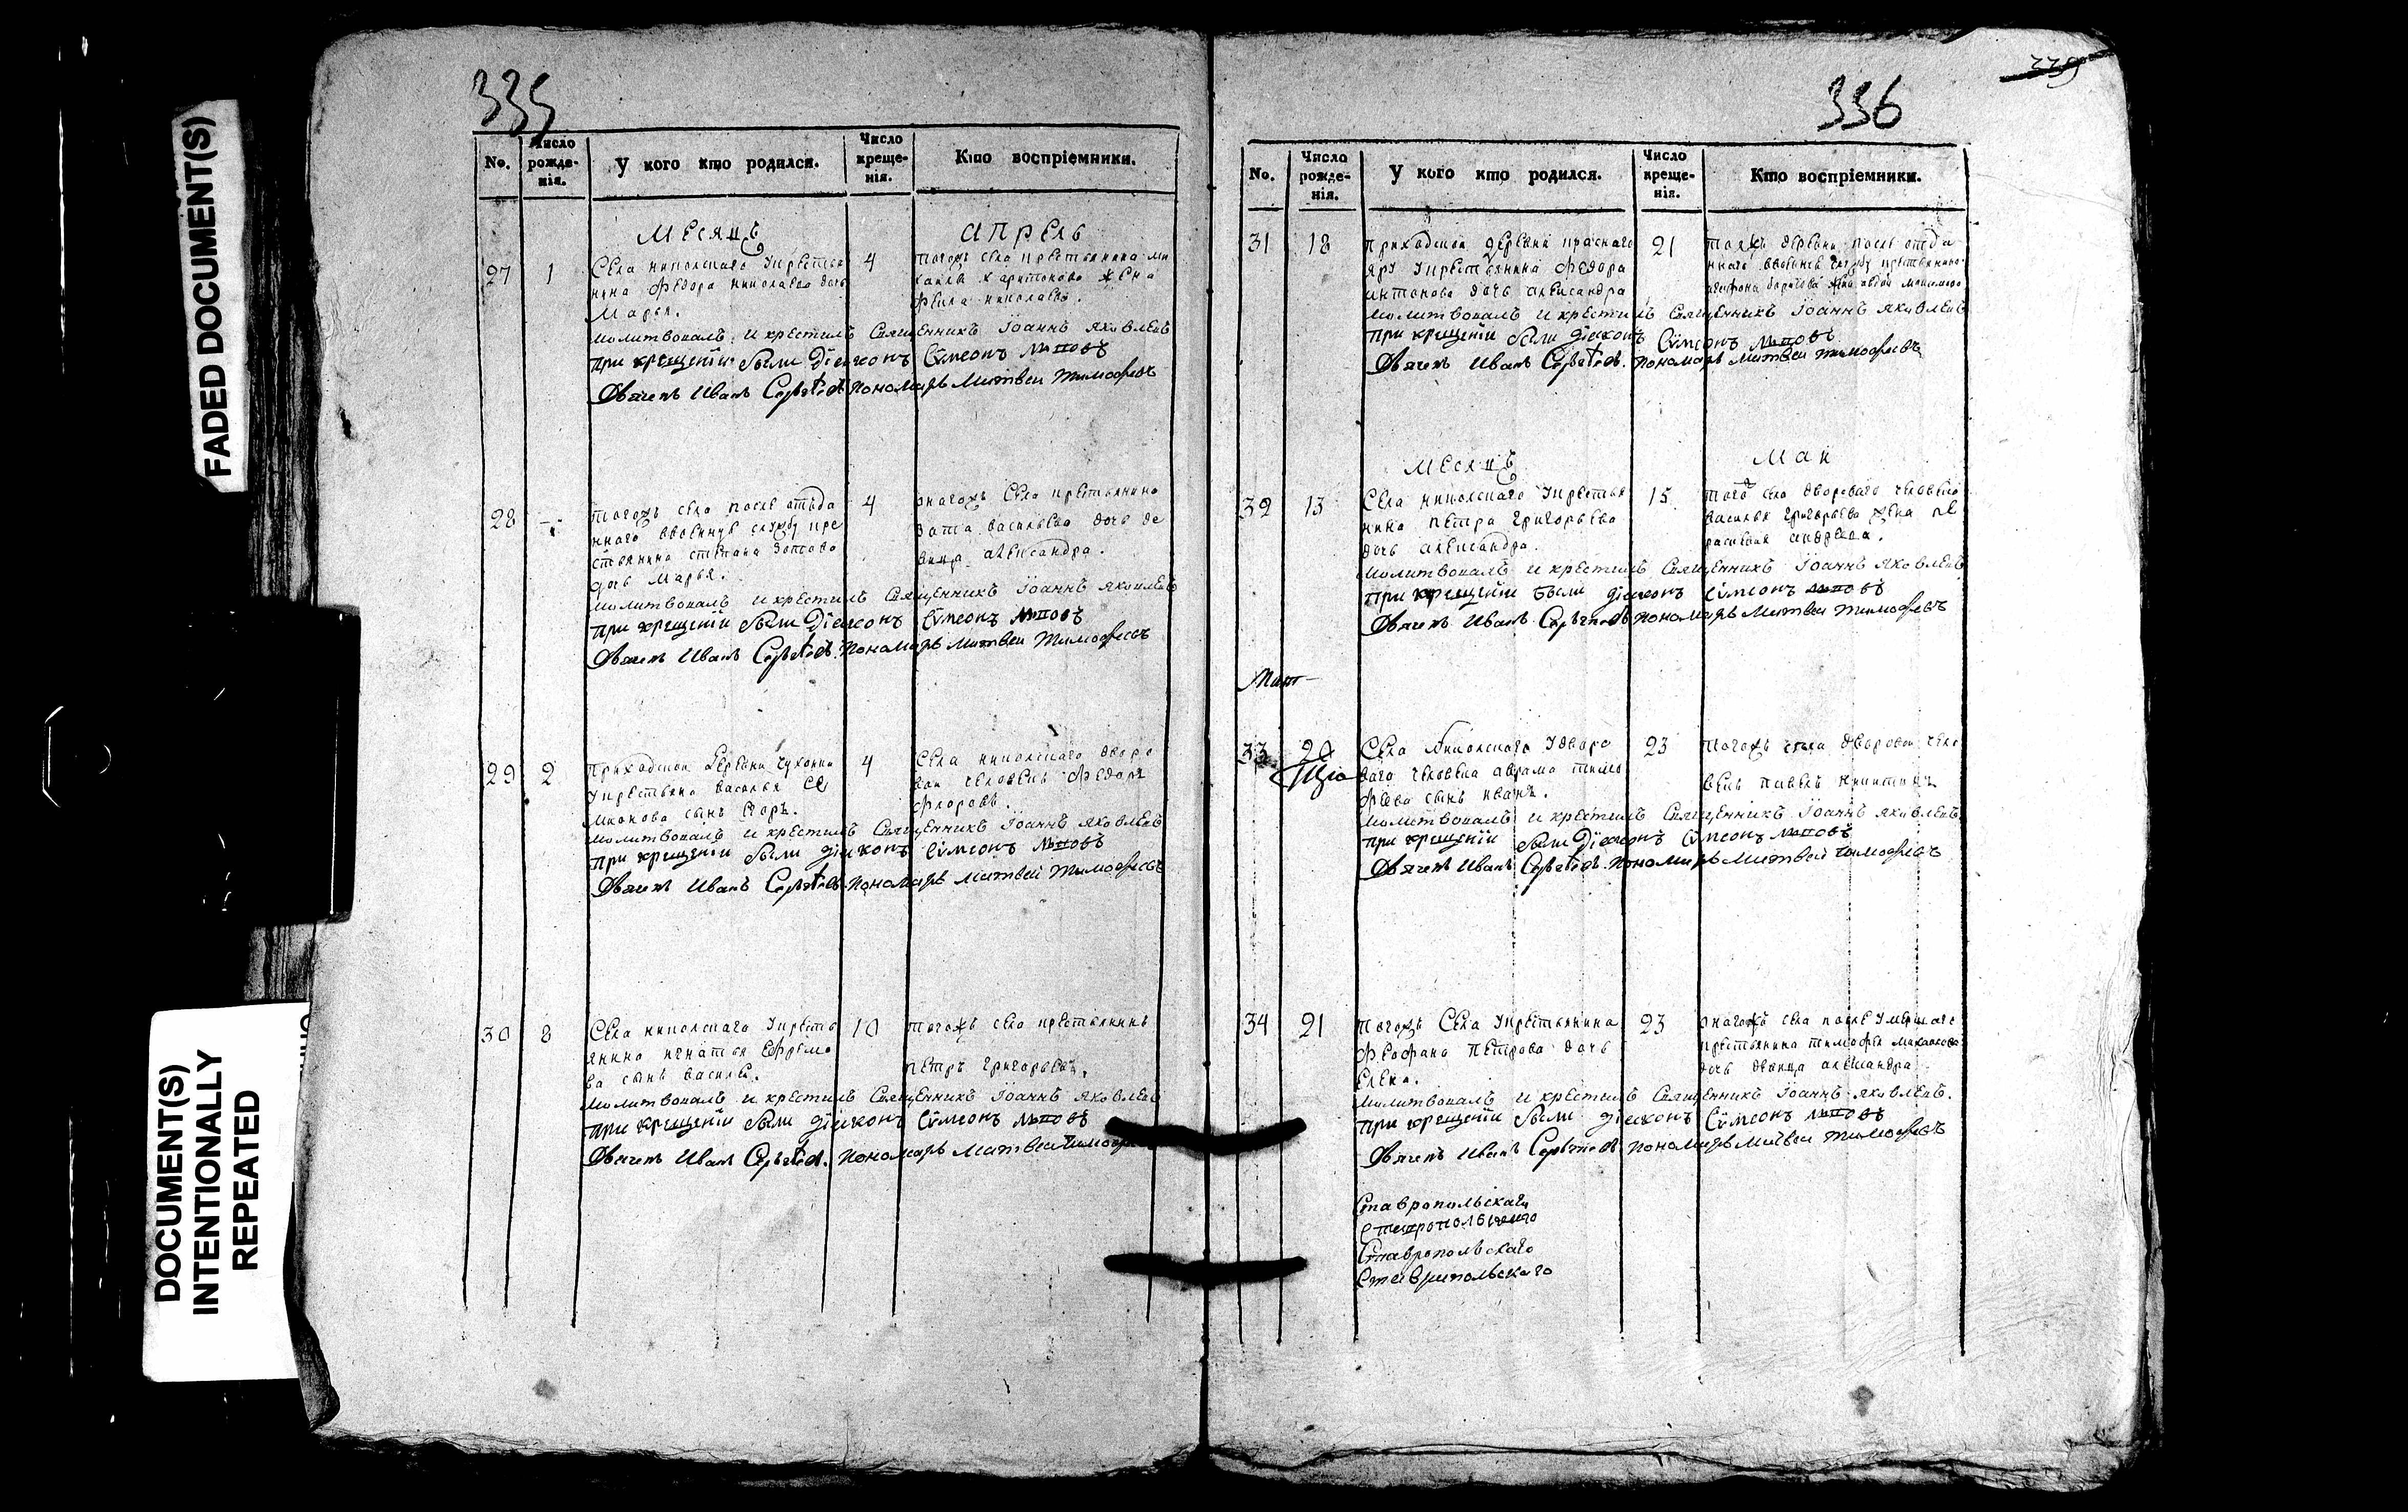 FADED DOCUMENT(S)
DOCUMENT(S)
INTENTIONALLY
REPEATED
335
No.
Число рожде-нія.
У кого кто родился.
Число креще-нія.
Кто воспріемники.
Месяцъ
Апрель
27
1
Села никольскаго укрестья
нина Федора николаева дочь
Марья.
4
тогожъ села крестьянина ми
хаила харитонова жена
Фекла николаева.
молитвовалъ и крестилъ Священникъ Іоаннъ Яковлевъ
при крещеніи были Діаконъ Сѵмеонъ
Дьячекъ Иванъ Сергеевъ. Пономарь Матвеи Тимофеевъ
28
тогожъ села после отъда
ннаго ввоеннуе службу кре
стьянина степана
дочь Марья.
4
оногожъ Села крестьянина
васильева дочь де
вица александра.
молитвовалъ и крестилъ Священникъ Іоаннъ Яковлевъ
при крещеніи были Діаконъ Сѵмеонъ
Дьячекъ Иванъ Сергеевъ. Пономарь Матвеи Тимофеевъ
29
2
Приходской деревни
укрестьяна василья се
сынъ Егоръ.
4
Села никольскаго дворо
вои человекъ Федоръ
Флоровъ.
молитвовалъ и крестилъ Священникъ Іоаннъ Яковлевъ
при крещеніи были діаконъ Сѵмеонъ
Дьячекъ Иванъ Сергеевъ. Пономарь Матвеи Тимофеевъ
30
8
Села никольскаго укресть
янина игнатья Ефремо
ва сынъ василеи.
10
тогожъ села крестьянинъ
петръ григорьевъ.
молитвовалъ и крестилъ Священникъ Іоаннъ Яковлевъ
при крещеніи были діаконъ Сѵмеонъ
Дьячекъ Иванъ Сергеевъ. Пономарь Матвеи
339
336
No.
Число рожде-нія.
У кого кто родился.
Число креще-нія.
Кто воспріемники.
31
18
приходской деревни краснаго
яру укрестьянина Федора
антонова дочь александра
21
тояжъ деревни после отда
ннаго
жена
молитвовалъ и крестилъ Священникъ Іоаннъ Яковлевъ
при крещеніи были діаконъ Сѵмеонъ
Дьячекъ Иванъ Сергеевъ. Пономарь Матвеи Тимофеевъ
Месяцъ
Маи
32
13
Села никольскаго укрестья
нина петра григорьева
дочь александра.
15
того села двороваго человека
василья григорьева жена
андреева.
молитвовалъ и крестилъ Священникъ Іоаннъ Яковлевъ
при крещеніи были діаконъ Сѵмеонъ
Дьячекъ Иванъ Сергеевъ. Пономарь Матвеи Тимофеевъ
33
20
Села Никольскаго удворо
ваго человека аврама тимо
феева сынъ иванъ.
23
тогожъ села дворовои чело
векъ павелъ никитинъ
молитвовалъ и крестилъ Священникъ Іоаннъ Яковлевъ.
при крещеніи были Діаконъ Сѵмеонъ
Дьячекъ Иванъ Сергеевъ. Пономарь Матвей Тимофеевъ
34
21
тогожъ Села укрестьянина
Феофана Петрова дочь
Елена.
23
оногожъ села после умершаго
крестьянина тимофея
дочь девица александра
молитвовалъ и крестилъ Священникъ Іоаннъ Яковлевъ.
при крещеніи были діаконъ Сѵмеонъ
Дьячекъ Иванъ Сергеевъ. Пономарь Матвеи Тимофеевъ
Ставропольскаго
Ставропольскаго
Ставропольскаго
Ставропольскаго